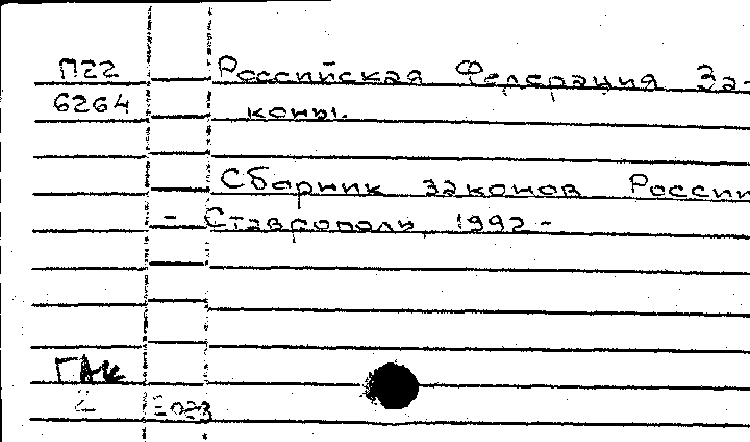 П22 Российская Федерация За-
6264 коны.
Сборник законов России
- Ставрополь, 1992 -
ГАК
2